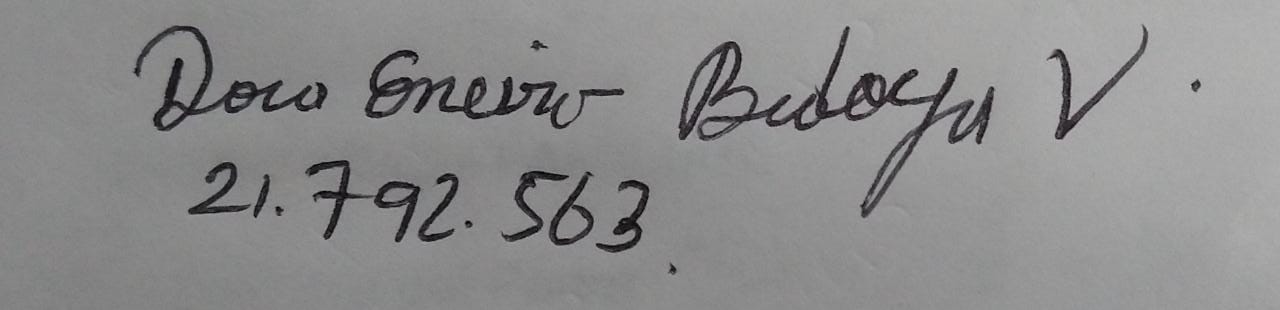 Dora Eneiro Bedoya V.
21.792.563.